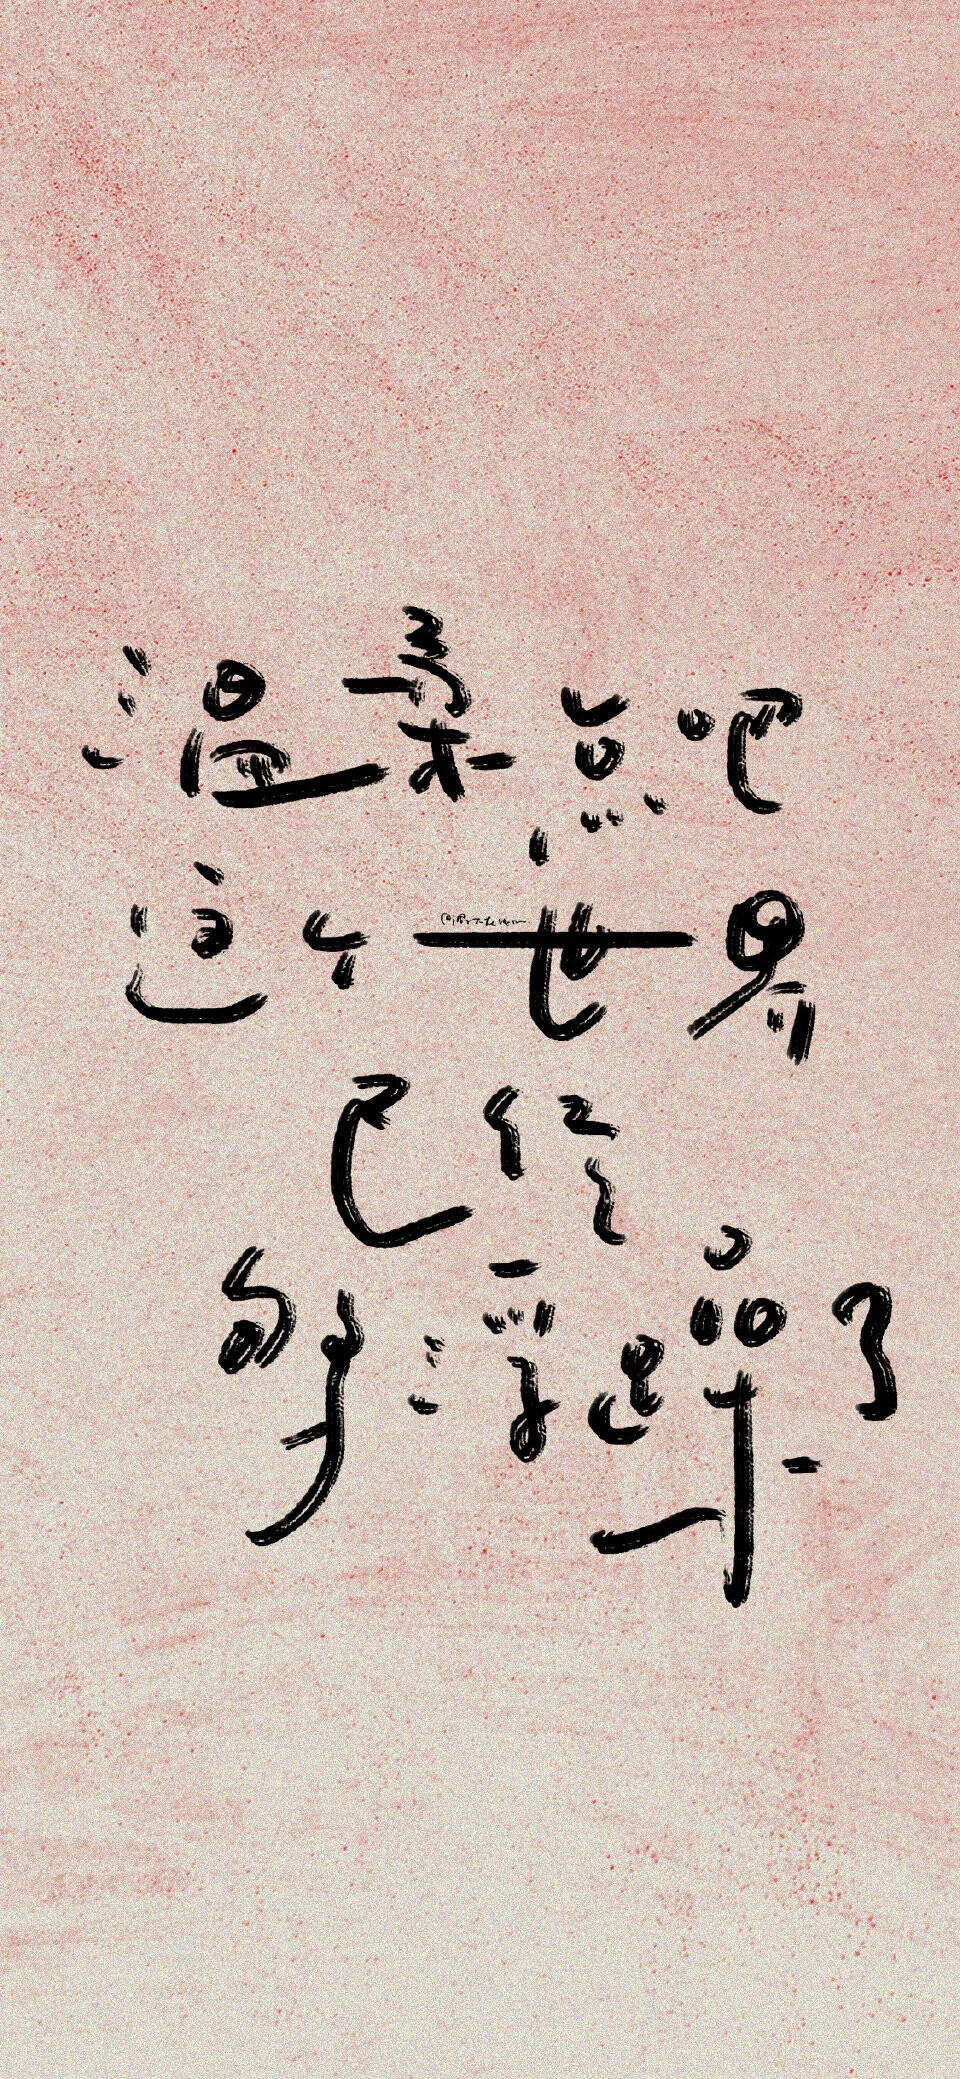 温柔点吧
这个世界
已经
够浮躁了